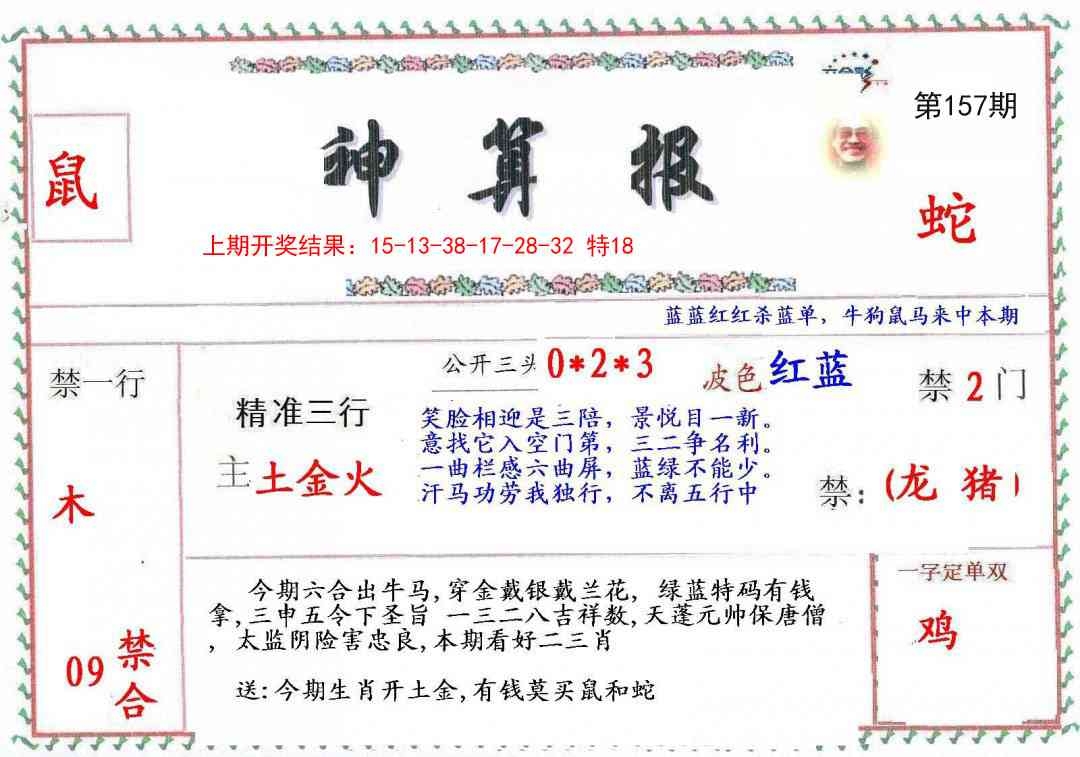 六合彩
第157期
鼠
神算报
蛇
上期开奖结果：15-13-38-17-28-32 特18
蓝蓝红红杀蓝单，牛狗鼠马来中本期
禁一行
公开三头 0*2*3
波色 红蓝
禁 2 门
精准三行
笑脸相迎是三陪，景悦目一新。
意找它入空门第，三二争名利。
一曲栏感六曲屏，蓝绿不能少。
汗马功劳我独行，不离五行中
主 土金火
禁：(龙 猪)
木
今期六合出牛马,穿金戴银戴兰花, 绿蓝特码有钱
拿,三申五令下圣旨 一三二八吉祥数,天蓬元帅保唐僧
, 太监阴险害忠良,本期看好二三肖
送:今期生肖开土金,有钱莫买鼠和蛇
一字定单双
鸡
09 禁合